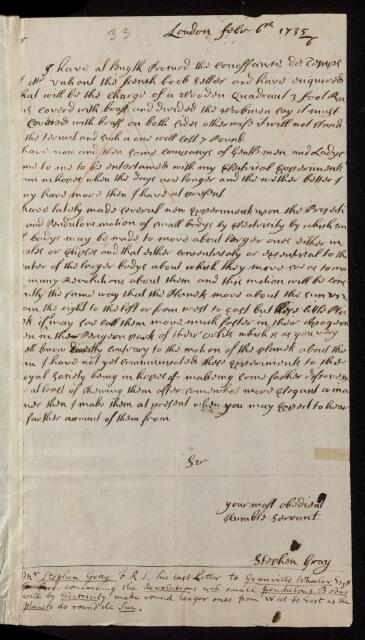 33
London Febr 6th 1735/6
I have at Length Procured the conoissance de temps
the french book seller and have enquired
what will be the charge of a Wooden Quadrant 2 foot
covered with brass and divided the workmen say it must
covered with brass on both sides otherwise it will not stand
and such a one will cost 7 Pound
have now and then some companys of Gentlemen and Ladys
come to me to be entertained with my Electrical Experiments
am in hopes when the days are longer and the wether better I
may have more then I have at present
have lately made several new Experiments upon the Projecti
and Pendulous motion of small bodys by Electricity by which
bodys may be made to move about larger ones either in
or Elipses and that either concentrical or excentrical to the
center of the larger bodys about which they move so as to ma
many Revolutions about them and this motion will be con
the same way that the Planets move about the sun viz
from the right to the left or from west to east but these little Plan
if I may so call them move much faster in their Apogeon
in the Perigeon parts of their Orbits which is as you very
well know directly contrary to the motion of the planets about the
I have not yet communicated these Experiments to the
Royal Society being in hopes of making some farther discoveri
at least of shewing them after somewhat more Elegant a ma
ner then I make them at present when you may Expect to hear
farther account of them from
Sr
your most obedient
Humble Servant
Stephen Gray
Mr Stephen Gray F.R.S. his last Letter to Granville Whaler Esqr
concerning the Revolutions wch small pendulous Bodys
will by Electricity make round larger ones from West to East as the
planets do round the Sun.